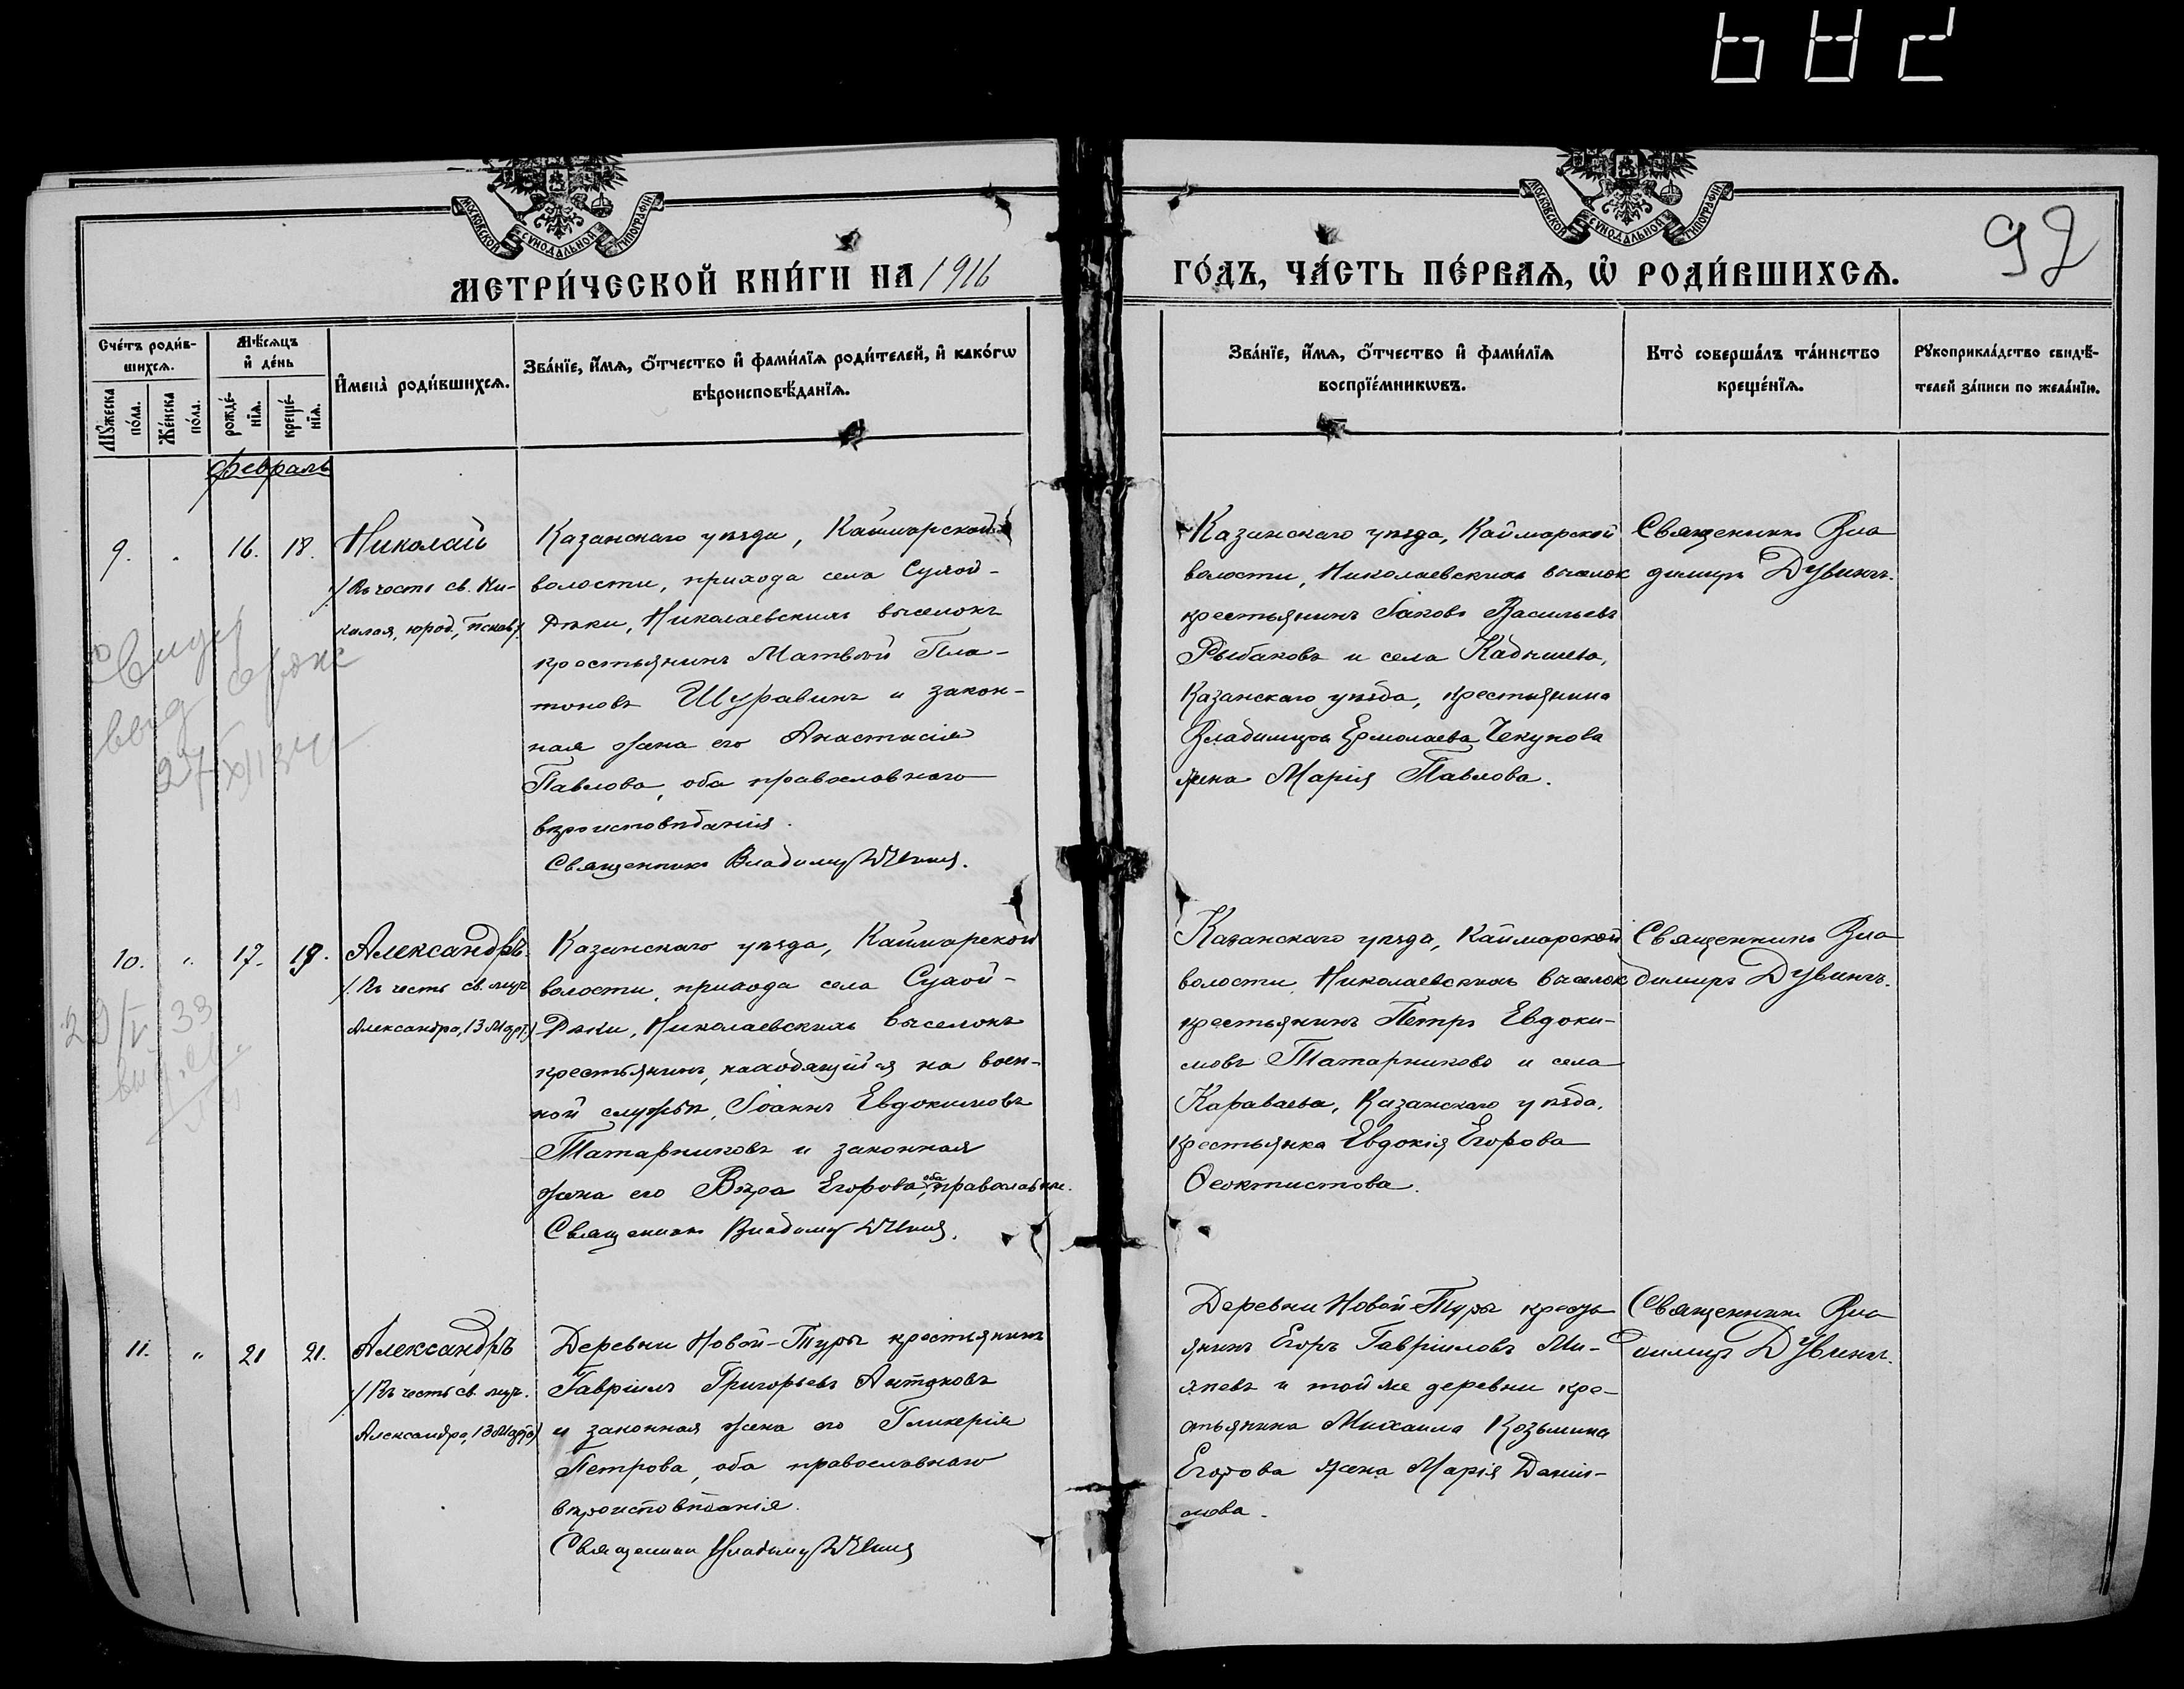 МОСКОВСКОЙ СУНОДАЛЬНОЙ ТИПОГРАФІИ
МОСКОВСКОЙ СУНОДАЛЬНОЙ ТИПОГРАФІИ
92
МЕТРИ́ЧЕСКОЙ КНИ́ГИ НА 1916
ГО́ДЪ, ЧА́СТЬ ПЕ́РВАѦ, Ѡ҆ РОДИ́ВШИХСѦ.
Сче́тъ роди́в-
шихсѧ.
Мѣ́сѧцъ
и҆ де́нь
Мꙋ́жеска
по́ла.
Же́нска
по́ла.
рожде́-
нїѧ.
креще́-
нїѧ.
И҆мена̀ роди́вшихсѧ.
Зва́нїе, и҆́мѧ, ѻ҆́тчество и҆ фами́лїѧ роди́телей, и҆ како́гѡ
вѣроисповѣ́данїѧ.
Зва́нїе, и҆́мѧ, ѻ҆́тчество и҆ фами́лїѧ
воспрїе́мникѡвъ.
Кто̀ соверша́лъ та́инство
креще́нїѧ.
Рꙋкоприкла́дство свидѣ́-
телей за́писи по жела́нїю.
Февраль
9. " 16. 18. Николай
/Въ честь св. Ни-
колая, юрод., псков/.
Казанскаго уѣзда, Каймарской
волости, прихода села Сухой-
Рѣки, Николаевскихъ выселокъ
крестьянинъ Матвѣй Пла-
тоновъ Шуравинъ и закон-
ная жена его Анастасія
Павлова, оба православнаго
вѣроисповѣданія.
Священникъ Владимір
Казанскаго уѣзда, Каймарской
волости, Николаевскихъ выселок
крестьянинъ Іаковъ Васильевъ
Рыбаковъ и села Кадышева,
Казанскаго уѣзда, крестьянина
Владимира Ермолаева Чекунова
жена Марія Павлова.
Священникъ Вла
димиръ
27 XII 34
10. " 17. 19. Александръ.
/. Въ честь св. муч.
Александра, 13 Март.)
Казанскаго уѣзда, Каймарской
волости, прихода села Сухой-
Рѣки, Николаевскихъ выселокъ
крестьянинъ, находящійся на воен-
ной службѣ, Іоаннъ Евдокимовъ
Татарниковъ и законная
жена его Вѣра Егорова, оба православные.
Священникъ Владимір
Казанскаго уѣзда, Каймарской
волости, Николаевскихъ выселок
крестьянинъ Петръ Евдоки-
мовъ Татарниковъ и села
Караваева, Казанскаго уѣзда,
крестьянка Евдокія Егорова
Ѳеоктистова.
Священникъ Вла
димиръ
29/V 33
11. " 21 21. Александръ
/Въ честь св. муч.
Александра, 13 Марта)
Деревни Новой-Туры крестьянинъ
Гавріилъ Григорьевъ Антоновъ
и законная жена его Гликерія
Петрова, оба православнаго
вѣроисповѣданія.
Священникъ Владимір
Деревни Новой-Туры кресть
янинъ Егоръ Гавріиловъ Ми-
хѣевъ и той же деревни кре-
стьянина Михаила Козьмина
Егорова жена Марія Даніи-
лова.
Священникъ Вла
димиръ